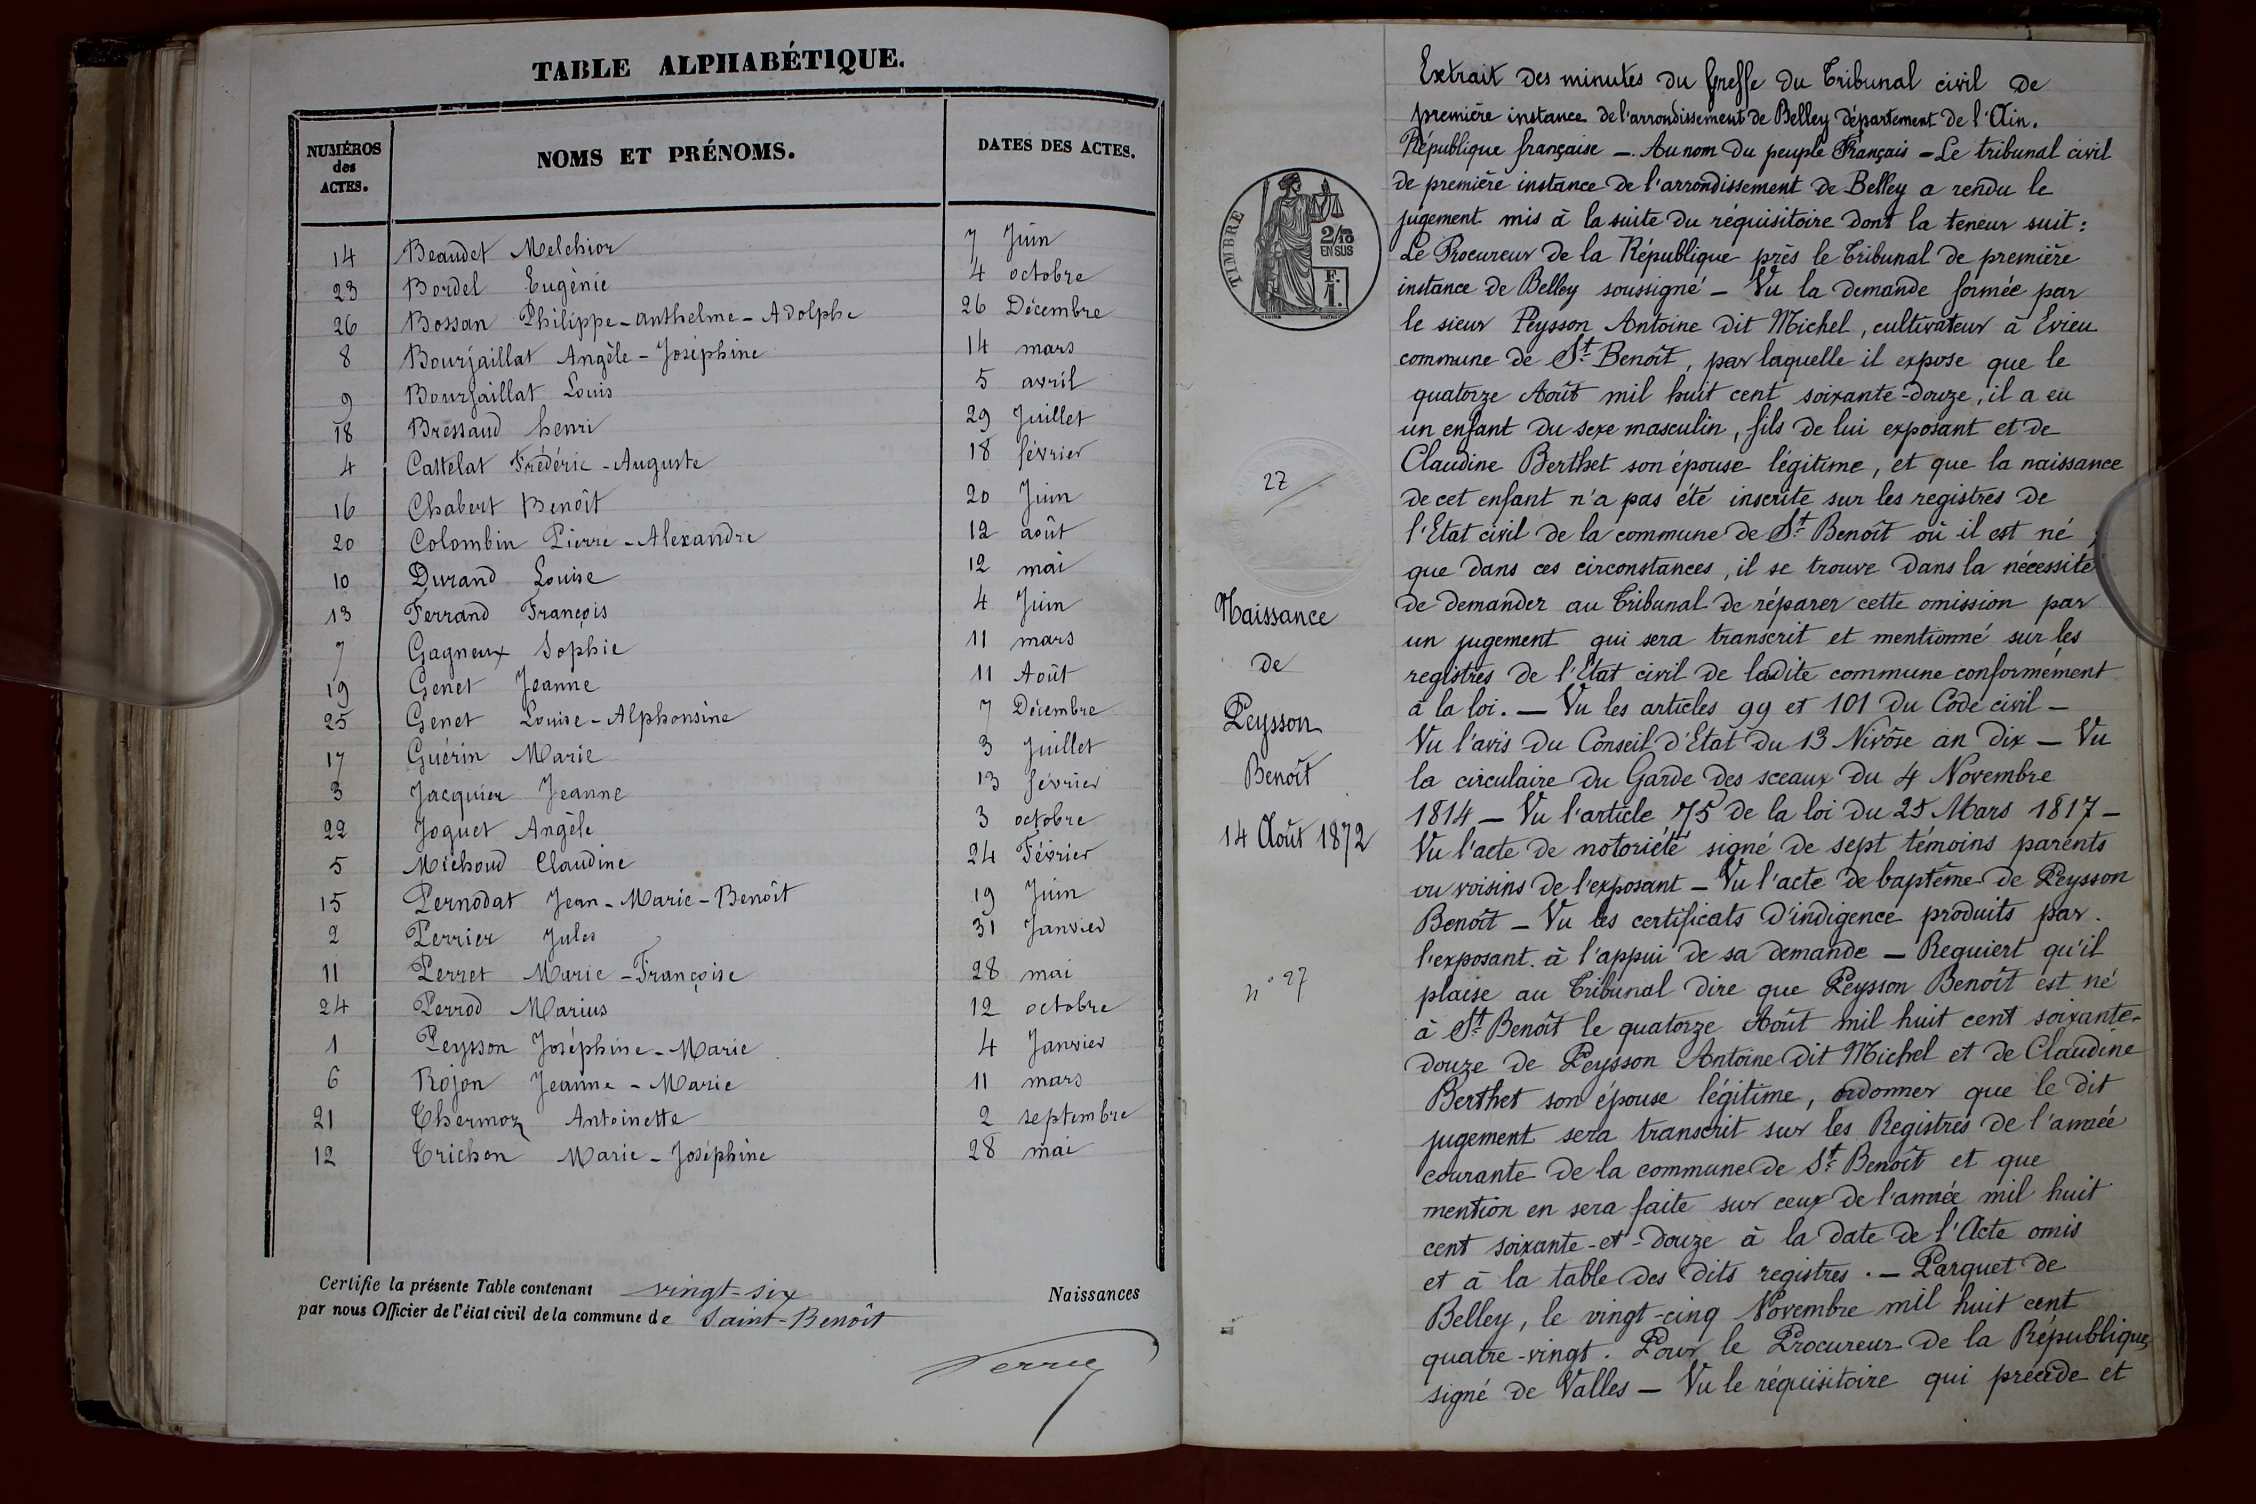 TABLE ALPHABÉTIQUE.
NUMÉROS des ACTES. NOMS ET PRÉNOMS. DATES DES ACTES.
14 Beaudet Melchior 7 Juin
23 Bordel Eugénie 4 octobre
26 Bossan Philippe-anthelme-Adolphe 26 Décembre
8 Bourjaillat Angèle-Joséphine 14 mars
9 Bourjaillat Louis 5 avril
18 Bressaud henri 29 Juillet
4 Cattelat Frédéric-Auguste 18 février
16 Chabert Benoît 20 Juin
20 Colombin Pierre-Alexandre 12 août
10 Durand Louise 12 mai
13 Ferrand François 4 Juin
7 Gagneux Sophie 11 mars
19 Genet Jeanne 11 Août
25 Genet Louise-Alphonsine 7 Décembre
17 Guérin Marie 3 Juillet
3 Jacquier Jeanne 13 février
22 Joguet Angèle 3 octobre
5 Michoud Claudine 24 Février
15 Pernodat Jean-Marie-Benoît 19 Juin
2 Perrier Jules 31 Janvier
11 Perret Marie-Françoise 28 mai
24 Perrod Marius 12 octobre
1 Peysson Joséphine-Marie 4 Janvier
6 Rojon Jeanne-Marie 11 mars
21 Thermoz Antoinette 2 septembre
12 Trichon Marie-Joséphine 28 mai
Certifie la présente Table contenant vingt-six Naissances
par nous Officier de l'état civil de la commune de Saint-Benoît
TIMBRE
2/10
EN SUS
F.
1.
27
Naissance
de
Peysson
Benoît
14 Août 1872
n° 27
Extrait des minutes du Greffe du Tribunal civil de
première instance de l'arrondissement de Belley département de l'Ain.
République française —. Au nom du peuple Français — Le tribunal civil
de première instance de l'arrondissement de Belley a rendu le
jugement mis à la suite du réquisitoire dont la teneur suit :
Le Procureur de la République près le Tribunal de première
instance de Belley soussigné — Vu la demande formée par
le sieur Peysson Antoine dit Michel, cultivateur à Evieu
commune de St Benoît, par laquelle il expose que le
quatorze Août mil huit cent soixante-douze, il a eu
un enfant du sexe masculin, fils de lui exposant et de
Claudine Berthet son épouse légitime, et que la naissance
de cet enfant n'a pas été inscrite sur les registres de
l'Etat civil de la commune de St Benoît où il est né ;
que dans ces circonstances, il se trouve dans la nécessité
de demander au Tribunal de réparer cette omission par
un jugement qui sera transcrit et mentionné sur les
registres de l'Etat civil de ladite commune conformément
à la loi. — Vu les articles 99 et 101 du Code civil —
Vu l'avis du Conseil d'Etat du 13 Nivôse an dix — Vu
la circulaire du Garde des sceaux du 4 Novembre
1814 — Vu l'article 75 de la loi du 25 Mars 1817 —
Vu l'acte de notoriété signé de sept témoins parents
ou voisins de l'exposant — Vu l'acte de baptême de Peysson
Benoît — Vu les certificats d'indigence produits par
l'exposant à l'appui de sa demande — Requiert qu'il
plaise au Tribunal dire que Peysson Benoît est né
à St Benoît le quatorze Août mil huit cent soixante-
douze de Peysson Antoine dit Michel et de Claudine
Berthet son épouse légitime, ordonner que le dit
jugement sera transcrit sur les Registres de l'année
courante de la commune de St Benoît et que
mention en sera faite sur ceux de l'année mil huit
cent soixante-et-douze à la date de l'Acte omis
et à la table des dits registres. — Parquet de
Belley, le vingt-cinq Novembre mil huit cent
quatre-vingt. Pour le Procureur de la République
signé de Valles — Vu le réquisitoire qui précède et